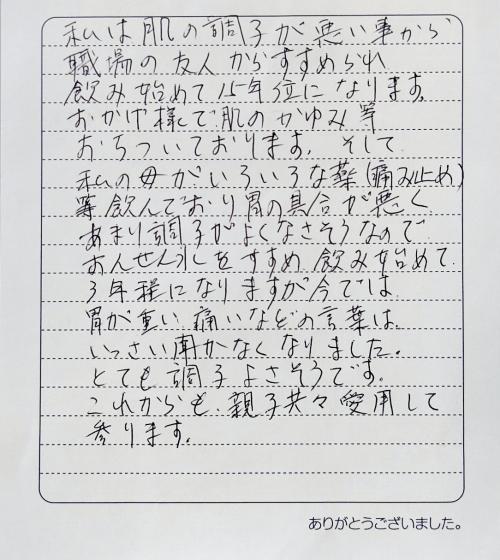 私は肌の調子が悪い事から
職場の友人からすすめられ
飲み始めて15年位になります。
おかげ様で肌のかゆみ等
おちついております。そして
私の母がいろいろな薬(痛み止め)
等飲んでおり胃の具合が悪く
あまり調子がよくなさそうなので
おんせん水をすすめ、飲み始めて
3年程になりますが今では
胃が重い、痛いなどの言葉は
いっさい聞かなくなりました。
とても調子よさそうです。
これからも、親子共々愛用して
参ります。
ありがとうございました。